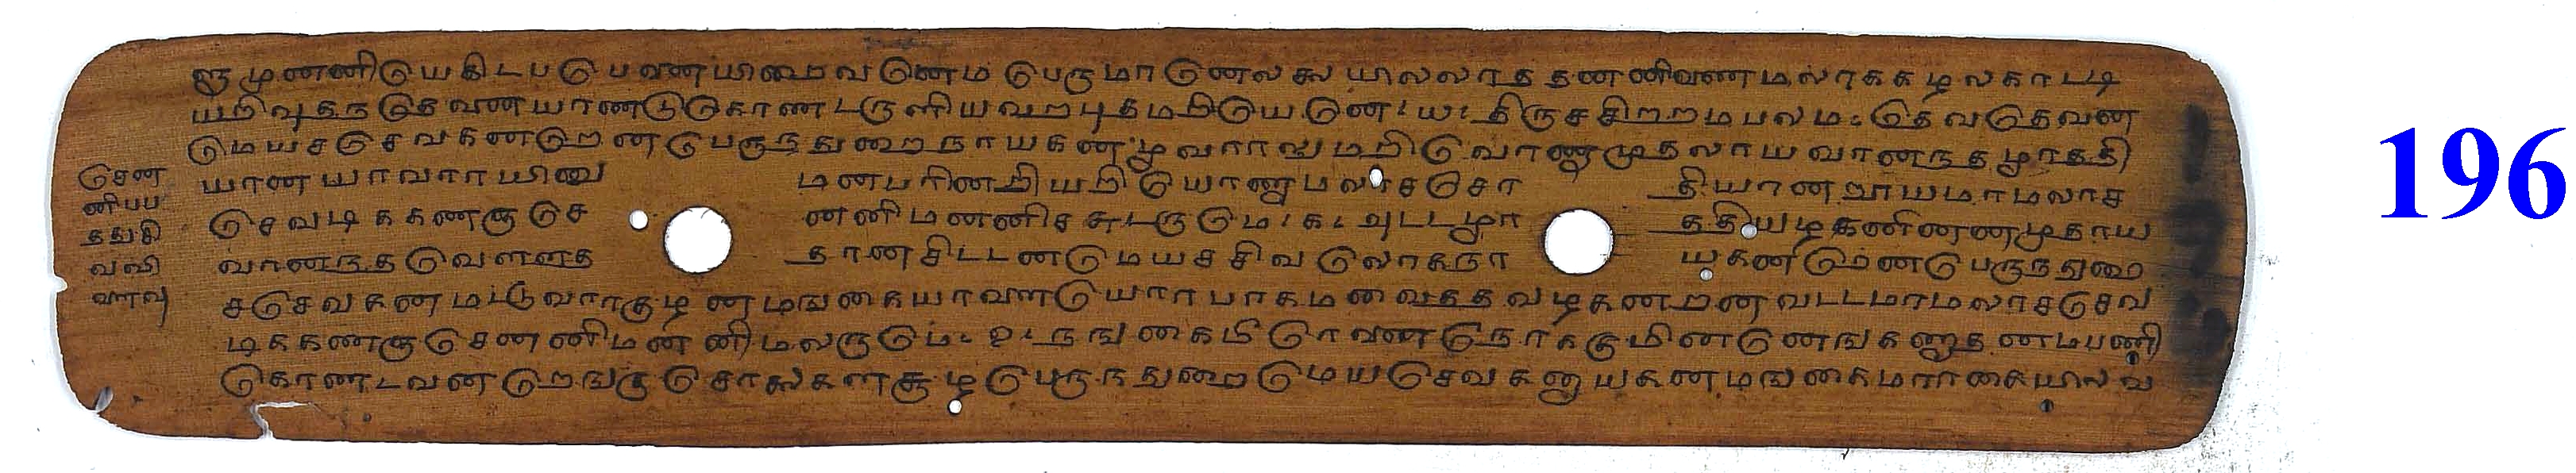 ளுமுனனியெயகிடபபடுபவணயிறைவனெம பெருமானெலலையிலலாத தனனிணைமலாககழலகாடடி
யறிவுதநதெனை யாணடுகொணடருளிய வறபுதமறியெனெ: ய: திருசசிறறமபலம: தெவதெவன
மெயசசெவகன றெனபெருநதுறைநாயகன மூவராலுமறியொணாமுதலாய வானநதமூாததி
யான யாவராயினு மனபரினறியறியொணாமலாசசொ தியான றூயமாமலாச
செவடிககணணஞசெ னனிமனனிசசுடருமெ: க: அடடமூா ததியழகனினனமுதாய
வானநதவெளளத தானசிடடனமெயசசிவலொகநா யகனறெனபெருநதுறை
சசெவகன மடடுவாாகுழனமஙகையாளையொா பாகமவைதத வழகனறன வடடமாமலாசசெவ
டிககணணஞசெனனிமனனிமலருமெ: உ: நஙகைமீரெனைநொககுமினனஙகணாதனமபணி
கொணடவனறெஙகு சொலைகளசூழபெருநதுறைமெயசெவகனாயகன மஙகைமாாகையில வ
சென
னிபப
ததுசி
வவி
ளைவு
196